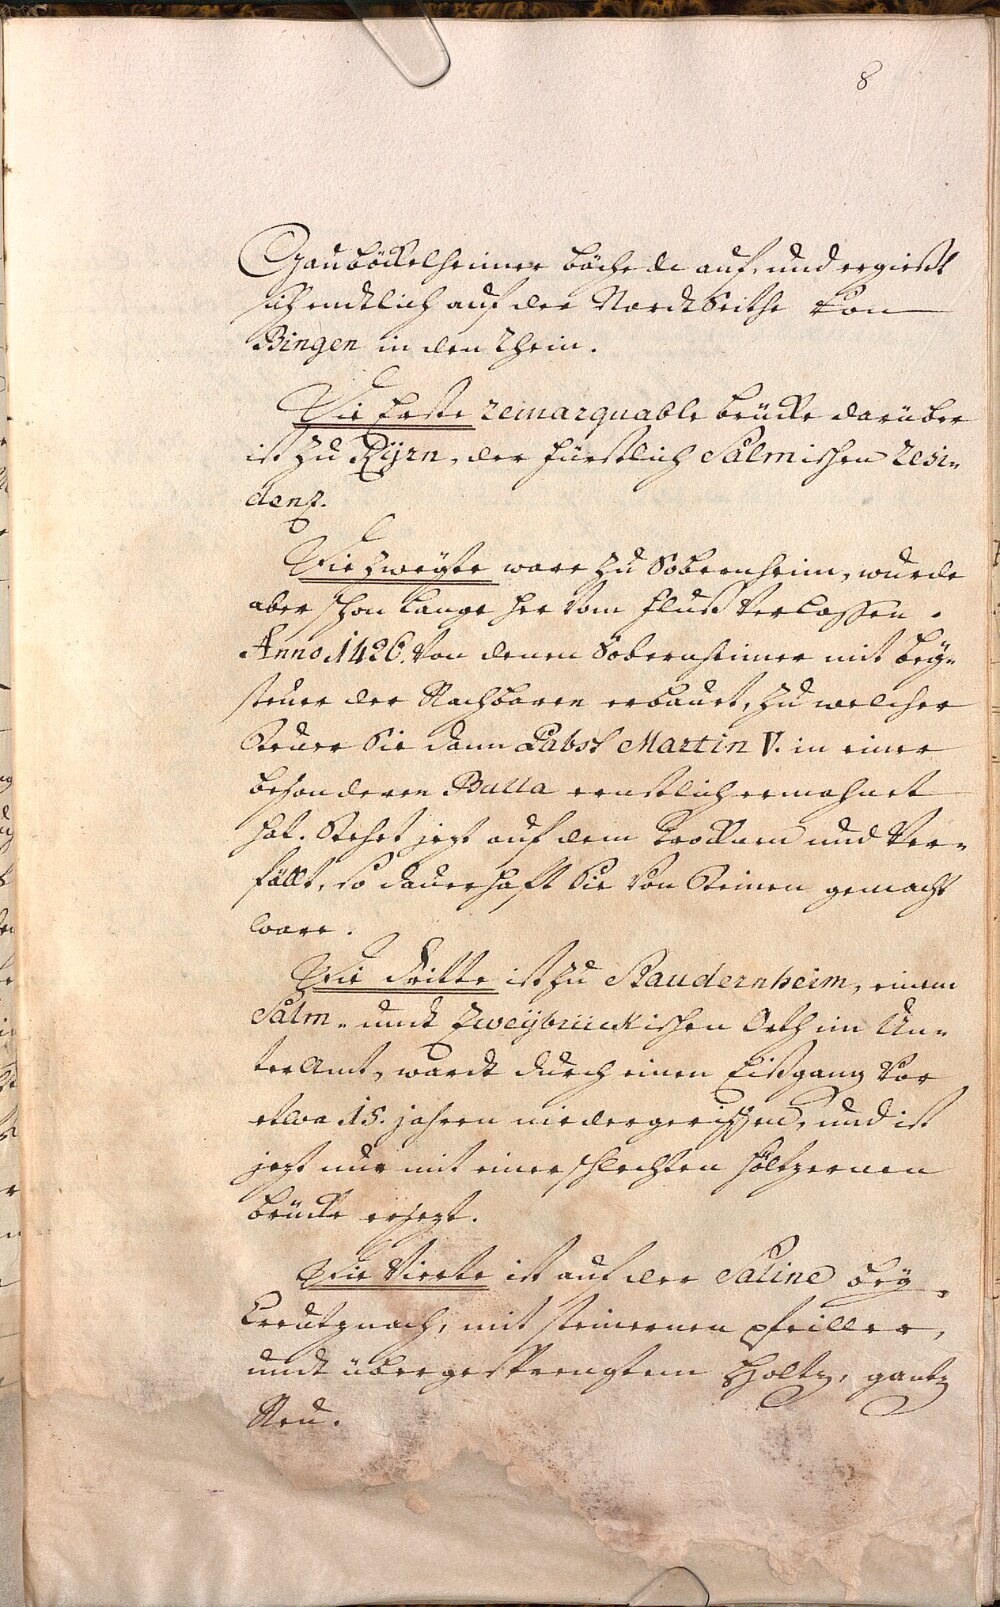 8
Gauböckelheimer bäche de auf, und ergießt
sich endtlich auf der Nordt Seithe von
Bingen in den Rhein.
Die Erste remarquable brücke darüber
ist zu Kÿrn, der Fürstlich Salmischen Resi-
denz.
Die zweÿte ware zu Sobernheim, wurde
aber schon lange her vom Fluß Verlassen.
Anno 1426. Von denen Sobernheimer mit beÿ-
steuer der Nachbaren erbauet, zu welcher
Steuer Sie dann Pabst Martin V. in einer
besonderen Bulla ernstlich ermahnet
hat. Stehet jezt auf dem trocknen und Ver-
fällt, so dauerhaft Sie von Steinen gemacht
ware.
Die Dritte ist zu Staudernheim, einem
Salm- undt Zweÿbrückischen Orth im Un-
ter Amt, wardt durch einen Eißgang Vor
etwa 15. jahren niedergerissen, und ist
jezt nur mit einer schlechten höltzernen
brücke ersezt.
Die Vierte ist auf der Saline beÿ
Creutznach, mit steinernen pfeiller,
undt übergesprengtem Holtz, gantz
Neu.